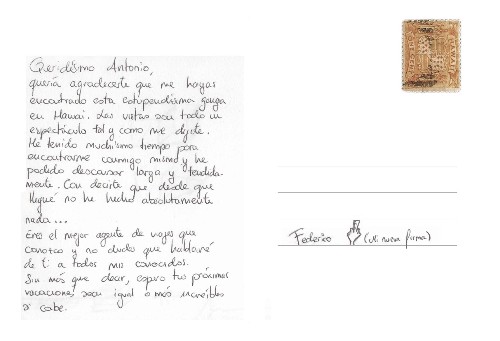 Queridísimo Antonio,
quería agradecerte que me hayas
encontrado esta estupendísima ganga
en Hawai. Las vistas son todo un
espectáculo tal y como me dijiste.
He tenido muchísimo tiempo para
encontrarme conmigo mismo y he
podido descansar larga y tendida-
mente. Con decirte que desde que
llegué no he hecho absolutamente
nada...
Eres el mejor agente de viajes que
conozco y no dudes que hablaré
de ti a todos mis conocidos.
Sin más que decir, espero tus próximas
vacaciones sean igual o más increíbles
si cabe.
Federico (Mi nueva firma)